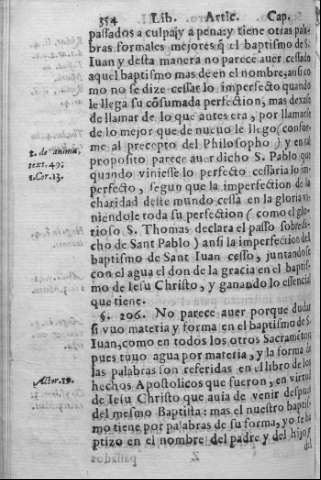 354 Lib. Artic. Cap.
passados a culpa, y a pena: y tiene otras pala-
bras formales mejores, q̃ el baptismo de S.
Iuan y desta manera no parece auer cessado
aquel baptismo mas de en el nombre, asi co
mo no se dize cessar lo imperfecto quando
le llega su cõsumada perfection, mas dexase
de llamar de lo que antes era, por llamarse
de lo mejor que de nueuo le llego (confor-
me al precepto del Philosopho) y en tal
proposito parece auer dicho S. Pablo que
quando viniesse lo perfecto cessaria lo im-
perfecto, segun que la imperfection de la
charidad deste mundo cessa en la gloria vi-
niendole toda su perfection (como el glo-
rioso S. Thomas declara el passo sobredi-
cho de Sant Pablo) ansi la imperfection del
baptismo de Sant Iuan cesso, juntandose
con el agua el don de la gracia en el baptis-
mo de Iesu Christo, y ganando lo essencial
que tiene.
§. 206. No parece auer porque dudar
si vuo materia y forma en el baptismo de S.
Iuan, como en todos los otros Sacramẽtos
pues tuuo agua por materia, y la forma de
las palabras son referidas en el libro de los
hechos Apostolicos que fueron, en virtud
de Iesu Christo que auia de venir despues
del mesmo Baptista: mas el nuestro baptis-
mo tiene por palabras de su forma, yo te ba
ptizo en el nombre del padre y del hijo y
2. de anima,
text. 49.
1. Cor. 13.
Actor. 19.
passados